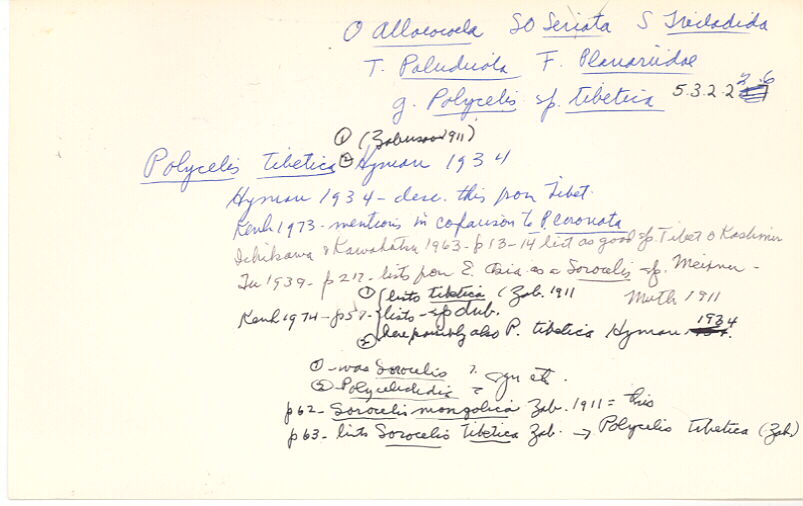 O Alloeocoela SO Seriata S Tricladida
T. Paludicola F. Planariidae
g. Polycelis sp. tibetica 5.3.2.2
① (Zabusov 1911)
Polycelis tibetica ② Hyman 1934
Hyman 1934 - desc. this from Tibet.
Kenk 1973 - mentions in coparison to P. coronata
Ichikawa & Kawakatsu 1963 - p 13-14 list as good sp. Tibet & Kashmir
1939 - p 217 - lists from E. Asia as a Sorocelis sp. Meixner -
① lists tibetica (Zab. 1911 Muth 1911
Kenk 1974 - p 57 - lists - sp dub.
② here possibly also P. tibetica Hyman 1934
① - was Sorocelis ?
② Polycelidia ?
p 62 - Sorocelis mongolica Zab. 1911 = this
p 63 - lists Sorocelis tibetica Zab. → Polycelis tibetica (Zab.)